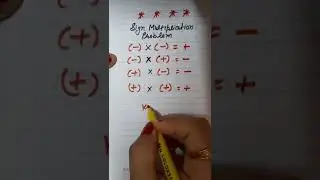 * * * *
Sign Multiplication
Problem
(-) × (-) = +
(-) × (+) = -
(+) × (-) = -
(+) × (+) = +